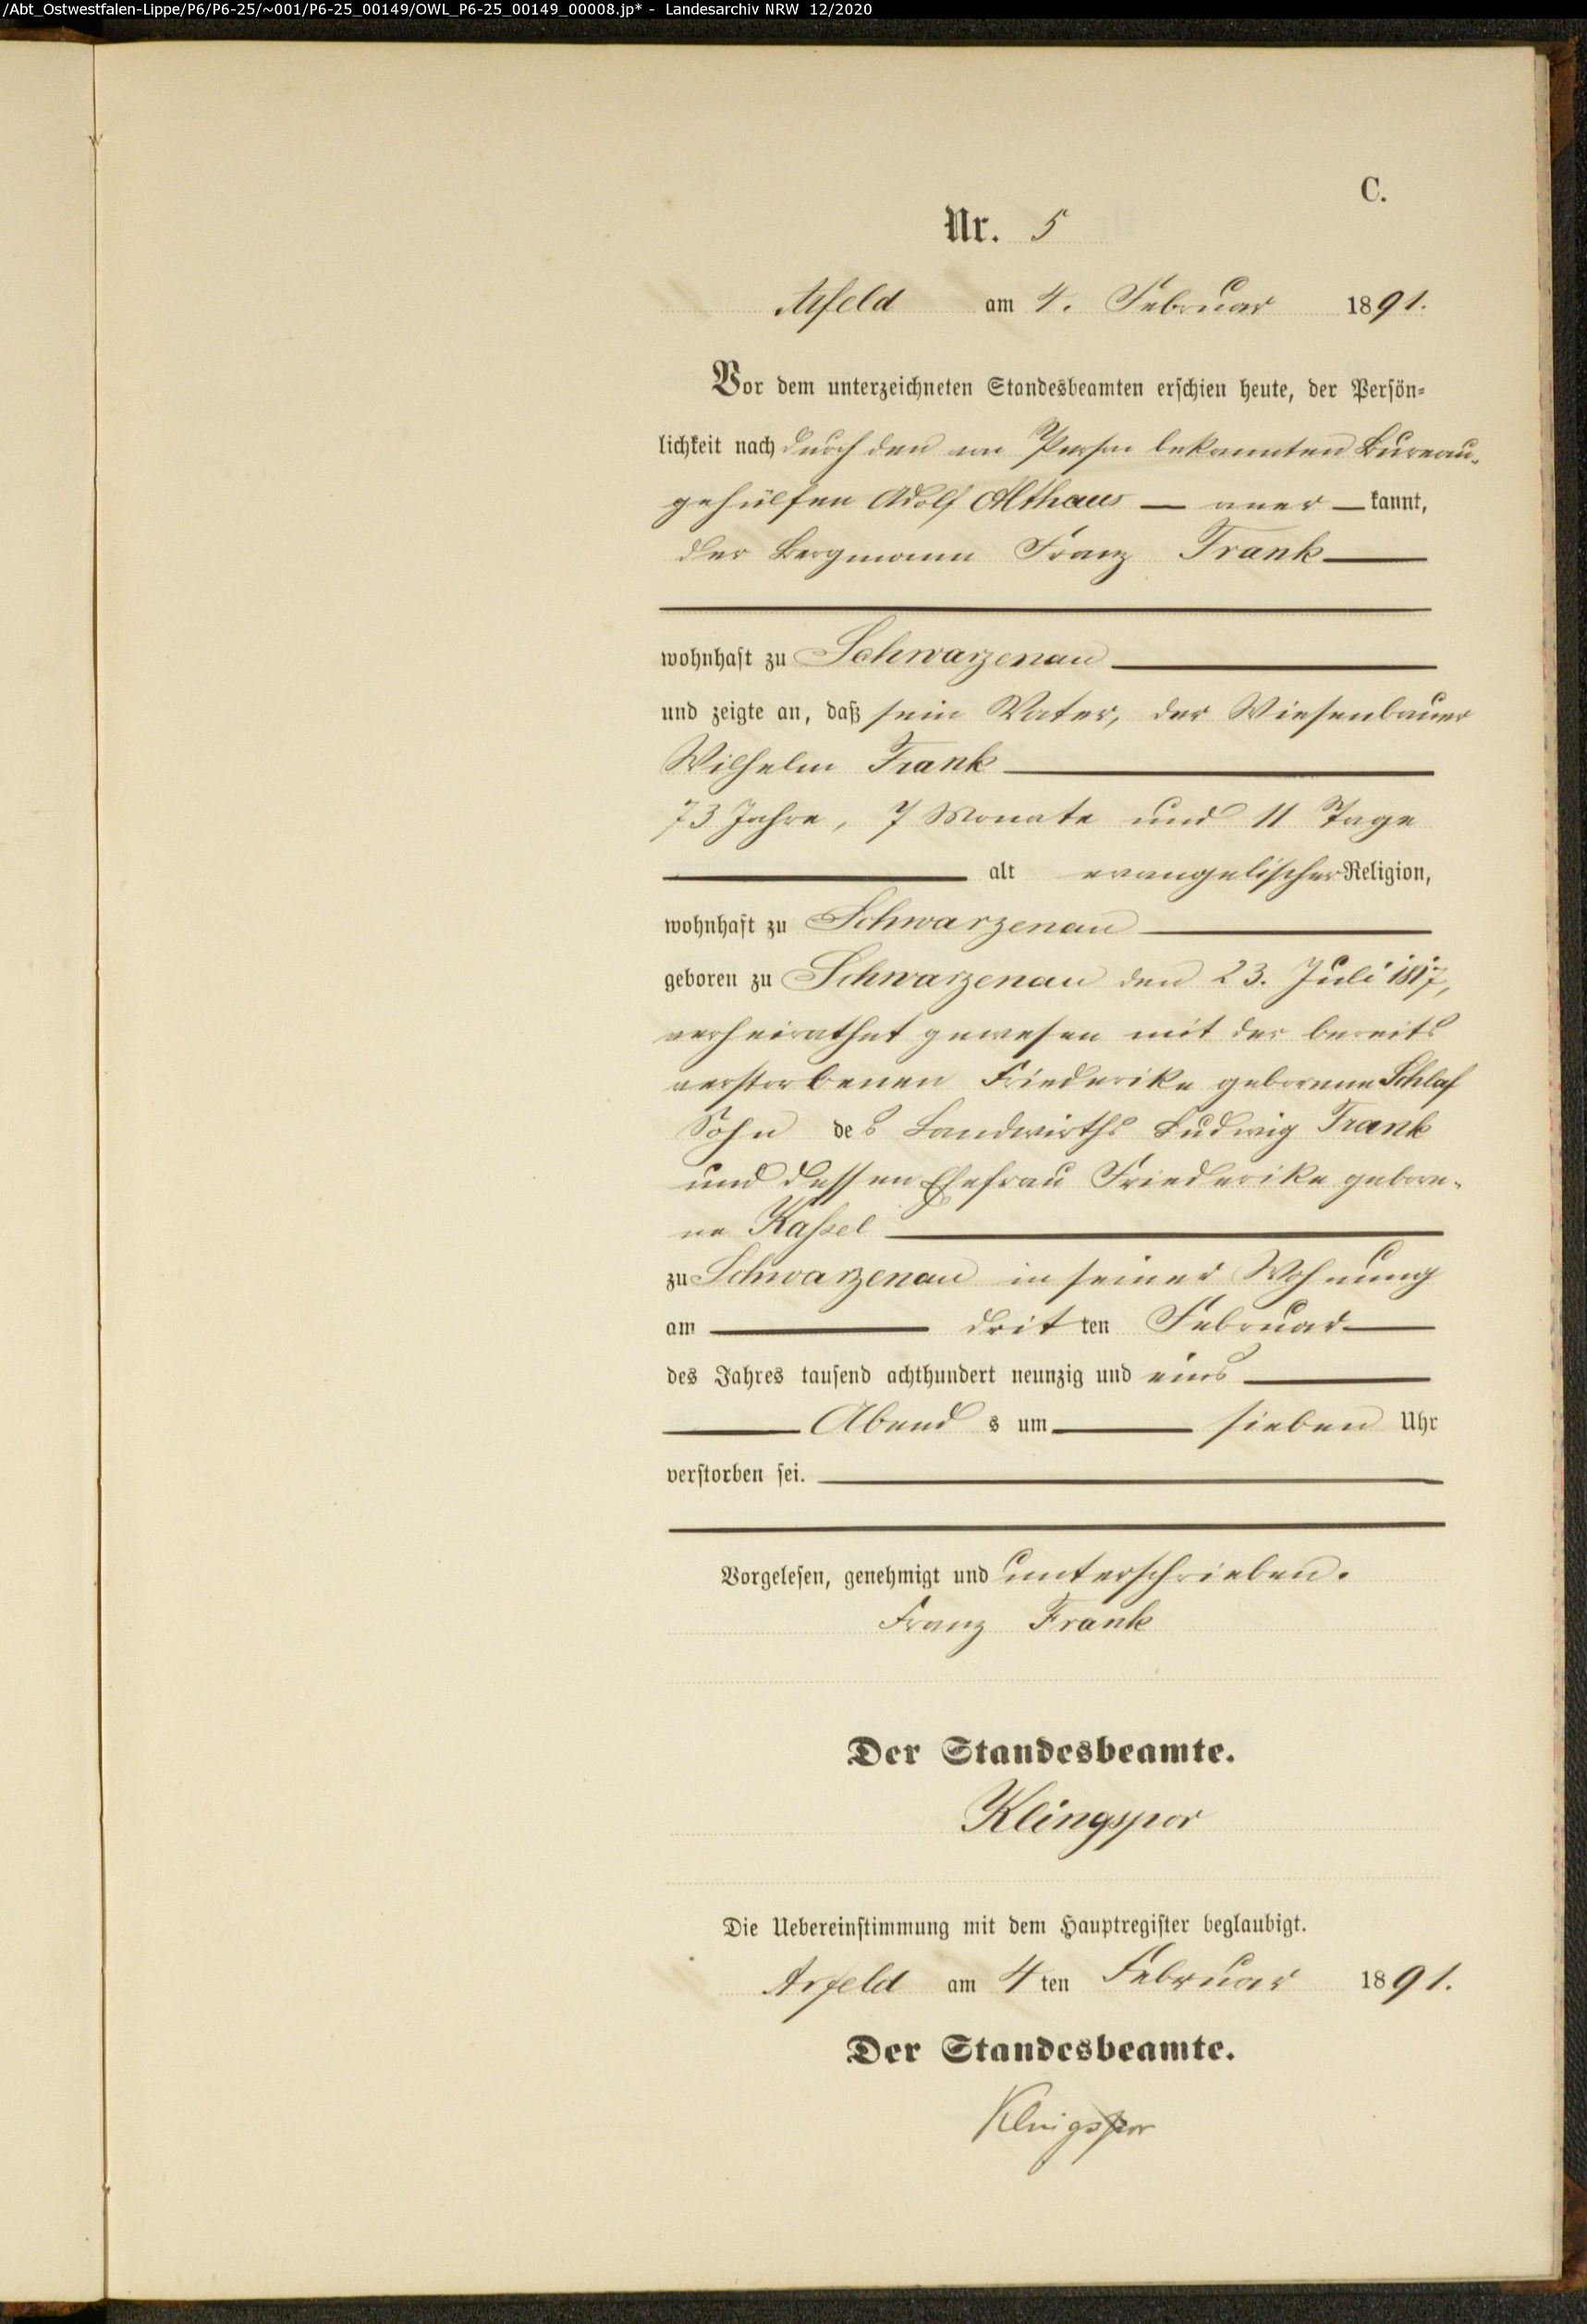 /Abt_Ostwestfalen-Lippe/P6/P6-25/~001/P6-25_00149/OWL_P6-25_00149_00008.jp* - Landesarchiv NRW 12/2020
C.
Nr. 5
Arfeld am 4. Februar 1891.
Vor dem unterzeichneten Standesbeamten erschien heute, der Persön-
lichkeit nach durch den von Person bekannten Bureau-
gehülfen Adolf Althaus — aner — kannt,
der Bergmann Franz Frank
wohnhaft zu Schwarzenau
und zeigte an, daß sein Vater, der Wiesenbauer
Wilhelm Frank
73 Jahre, 7 Monate und 11 Tage
alt evangelischer Religion,
wohnhaft zu Schwarzenau
geboren zu Schwarzenau den 23. Juli 1817,
verheirathet gewesen mit der bereits
verstorbenen Friederike geborene Schlaf
Sohn des Landwirths Ludwig Frank
und dessen Ehefrau Friederike gebore-
ne Kassel
zu Schwarzenau in seiner Wohnung
am dritten Februar
des Jahres tausend achthundert neunzig und eins
Abends um sieben Uhr
verstorben sei.
Vorgelesen, genehmigt und unterschrieben.
Franz Frank
Der Standesbeamte.
Klingspor
Die Uebereinstimmung mit dem Hauptregister beglaubigt.
Arfeld am 4ten Februar 1891.
Der Standesbeamte.
Klingspor